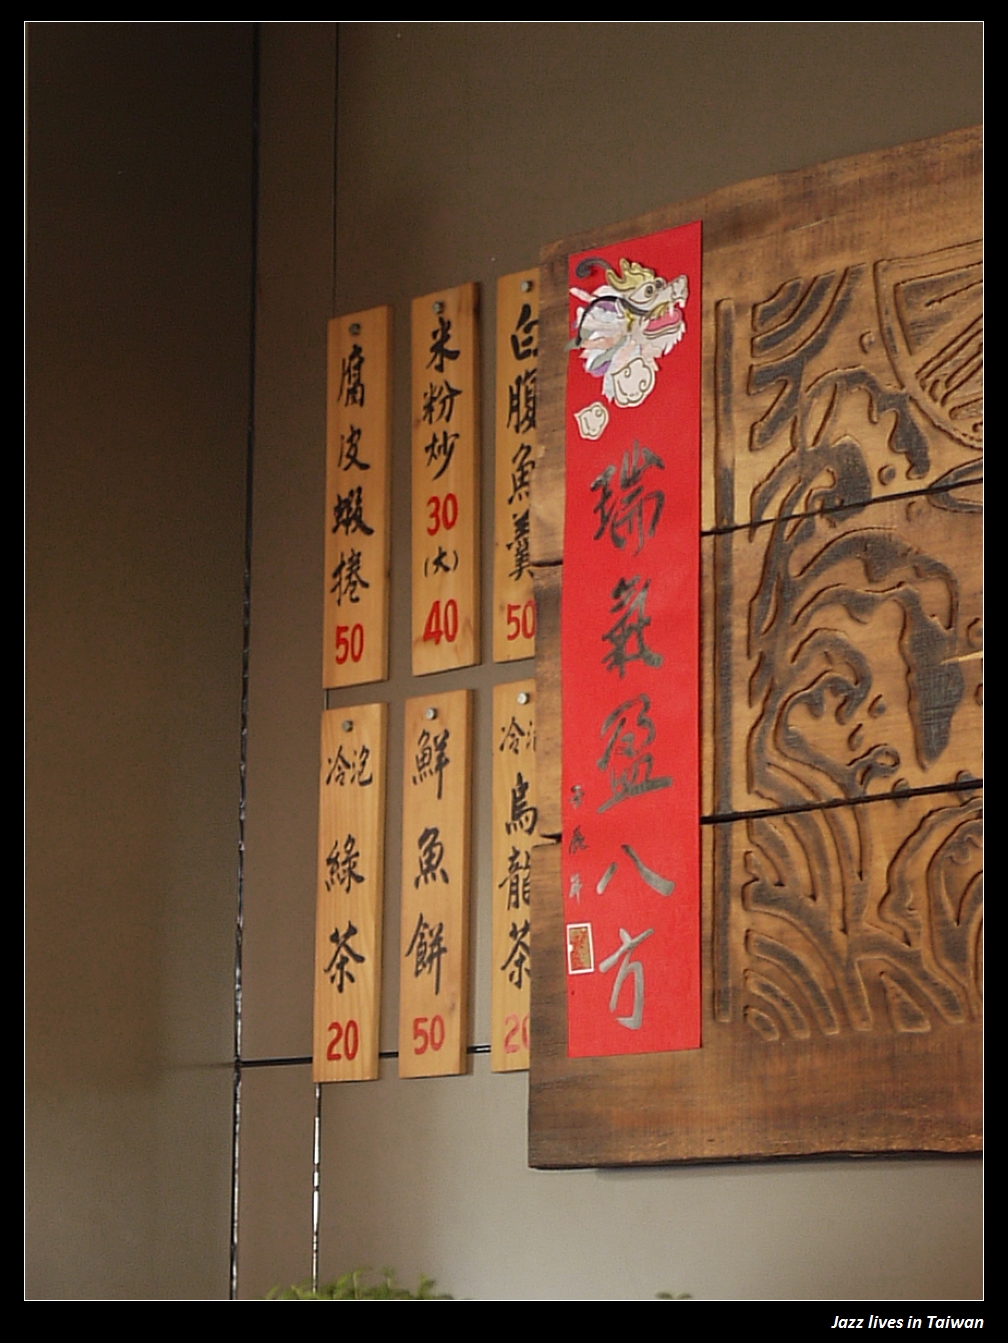 腐皮蝦捲
50
米粉炒
30
(大)
40
白腹魚羹
50
冷泡
綠茶
20
鮮魚餅
50
冷泡
烏龍茶
20
瑞氣盈八方
Jazz lives in Taiwan